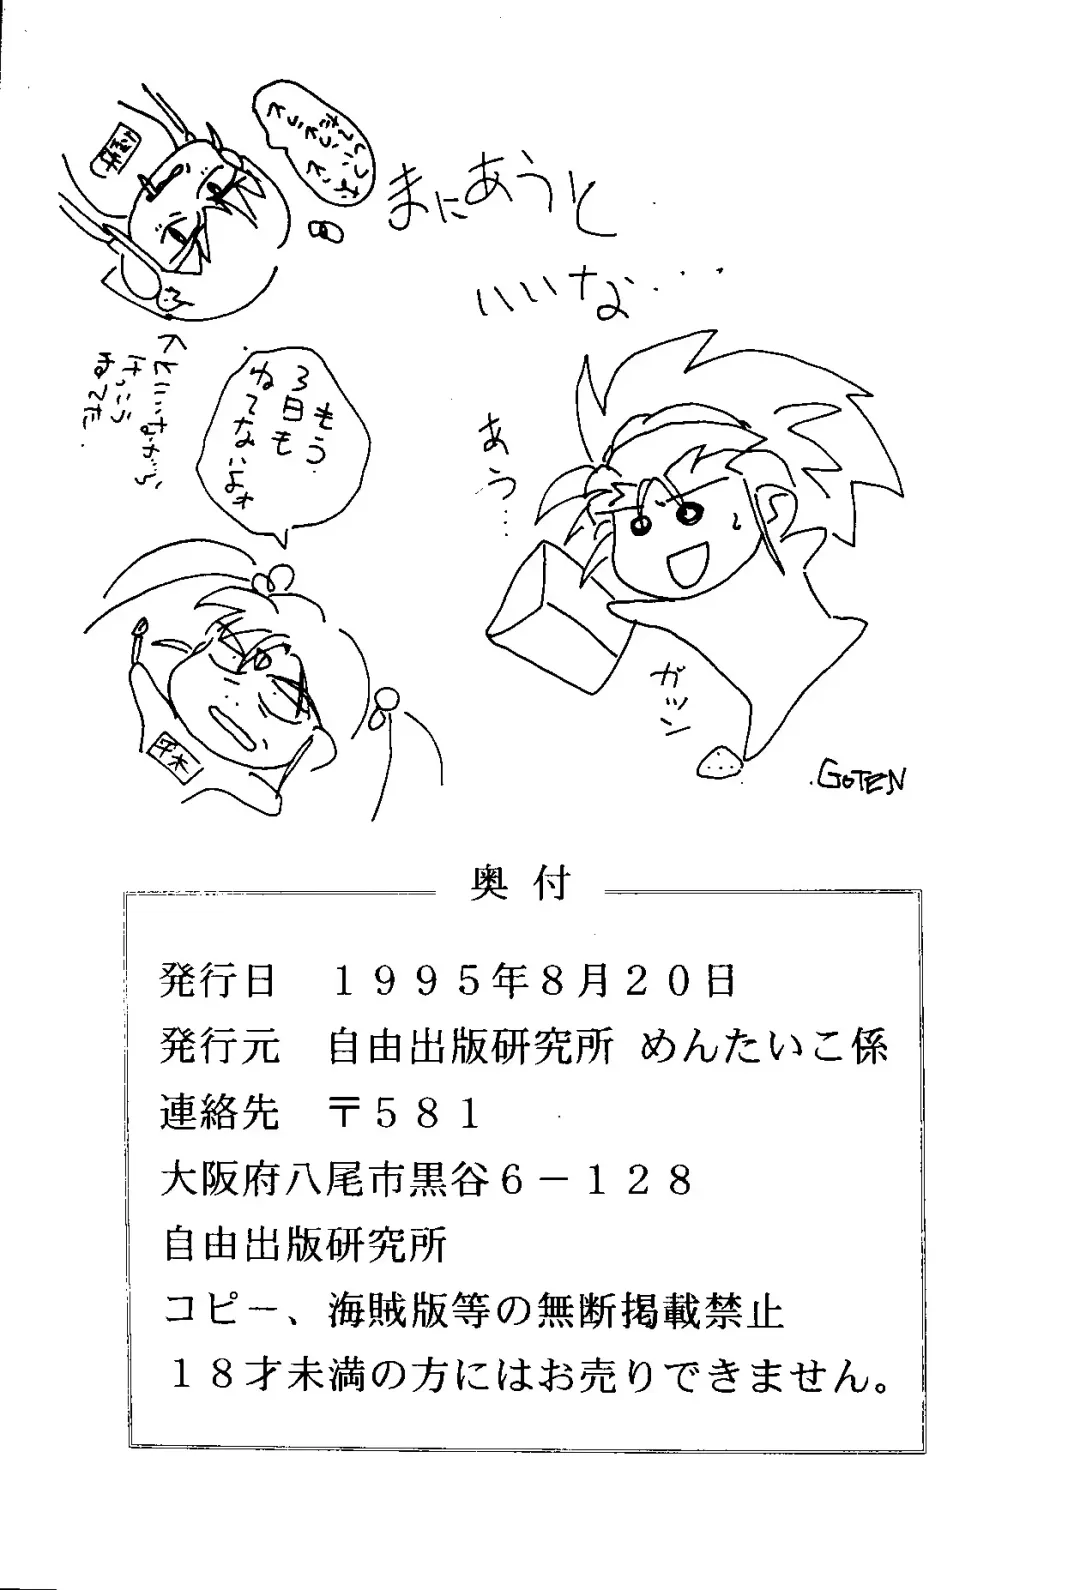 まにあうと
いいな...
もう
3日も
ねてないよ
←といいながら
けっこう
ねてた.
あう...
ガッン
平木
.GOTEN
奥付
発行日　１９９５年８月２０日
発行元　自由出版研究所 めんたいこ係
連絡先　〒５８１
大阪府八尾市黒谷６－１２８
自由出版研究所
コピー、海賊版等の無断掲載禁止
１８才未満の方にはお売りできません。